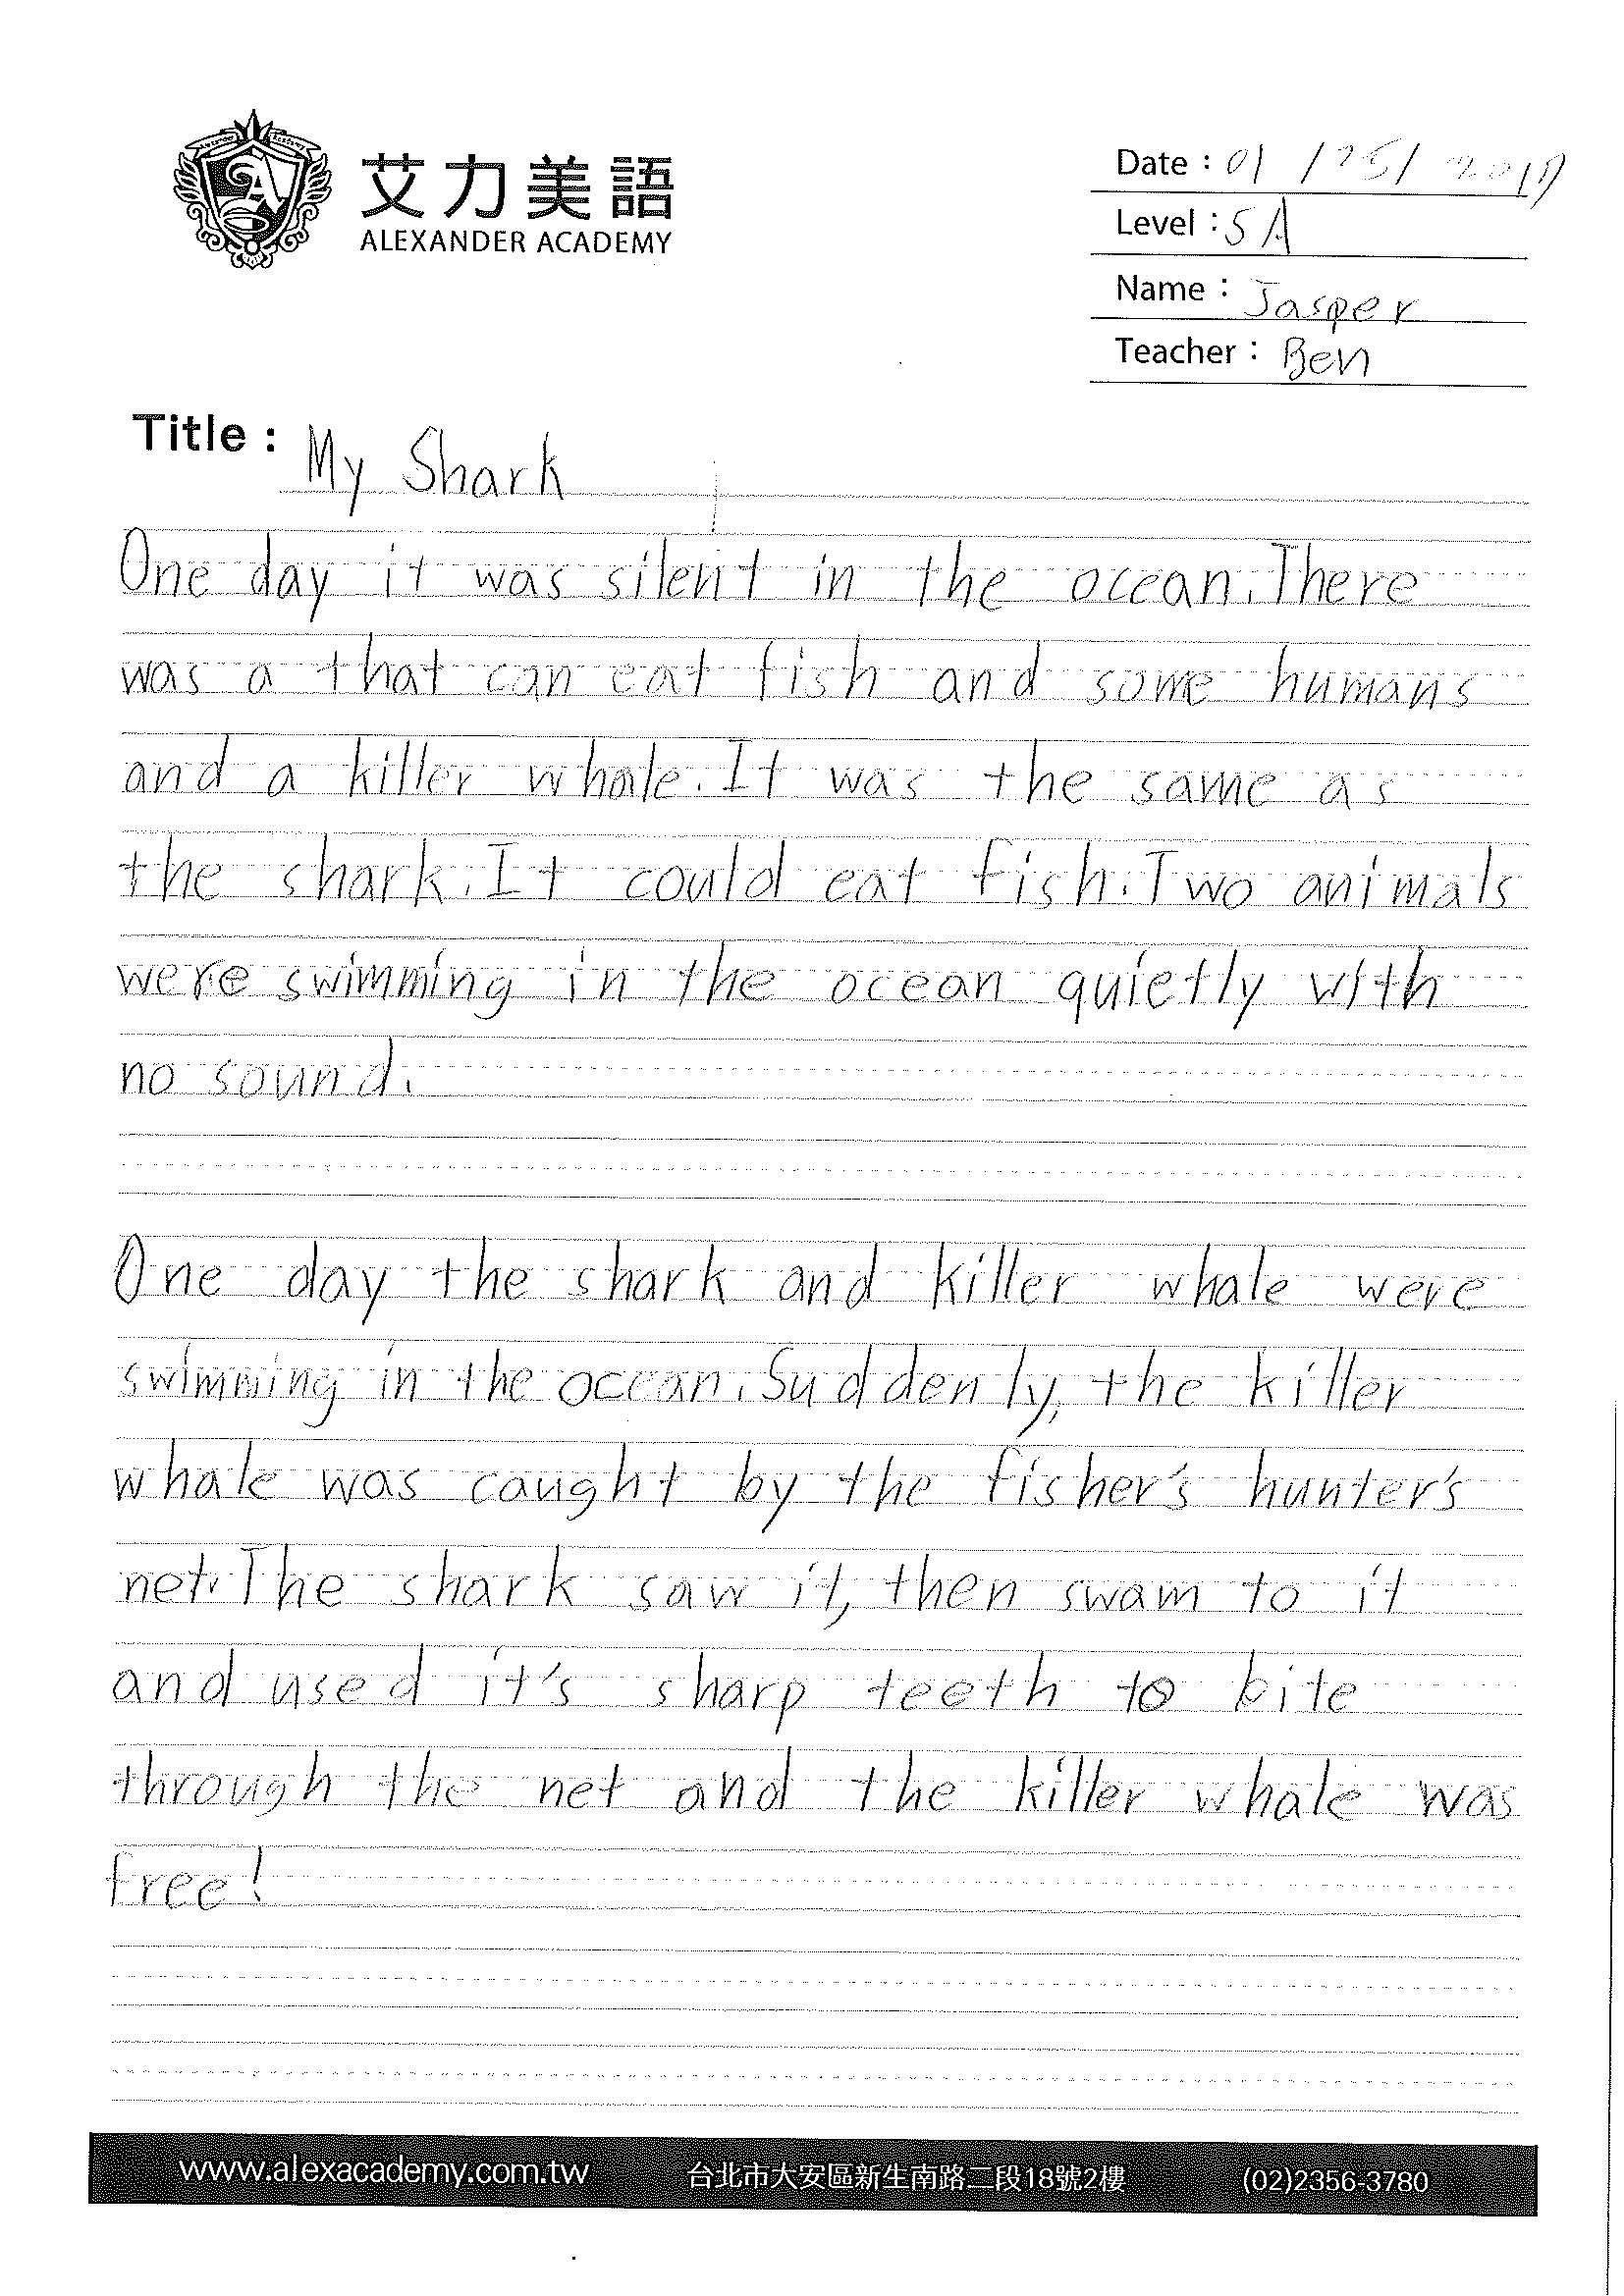 艾力美語
ALEXANDER ACADEMY
Date : 01 / 25 / 2019
Level : 5A
Name : Jasper
Teacher : Ben
Title : My Shark
One day it was silent in the ocean. There
was a that can eat fish and some humans
and a killer whale. It was the same as
the shark. It could eat fish. Two animals
were swimming in the ocean quietly with
no sound.
One day the shark and killer whale were
swimming in the ocean. Suddenly, the killer
whale was caught by the fisher's hunter's
net. The shark saw it, then swam to it
and used it's sharp teeth to bite
through the net and the killer whale was
free!
www.alexacademy.com.tw 台北市大安區新生南路二段18號2樓 (02)2356-3780